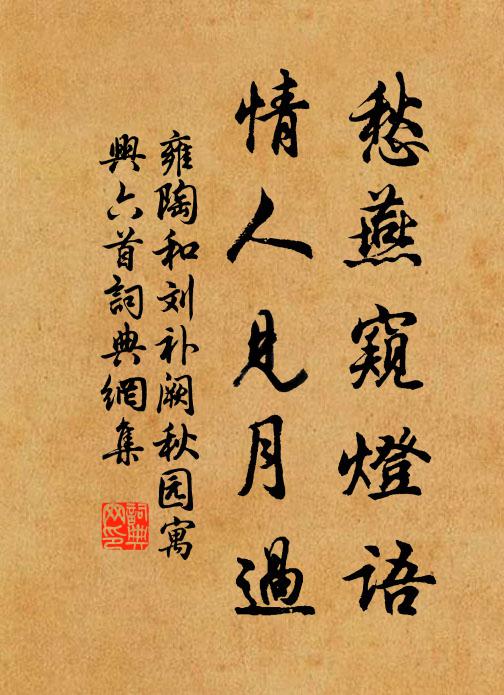 愁燕窺燈語
情人見月過
雍陶和刘补阙秋园寓
興六首詞典網集
詞典
网印